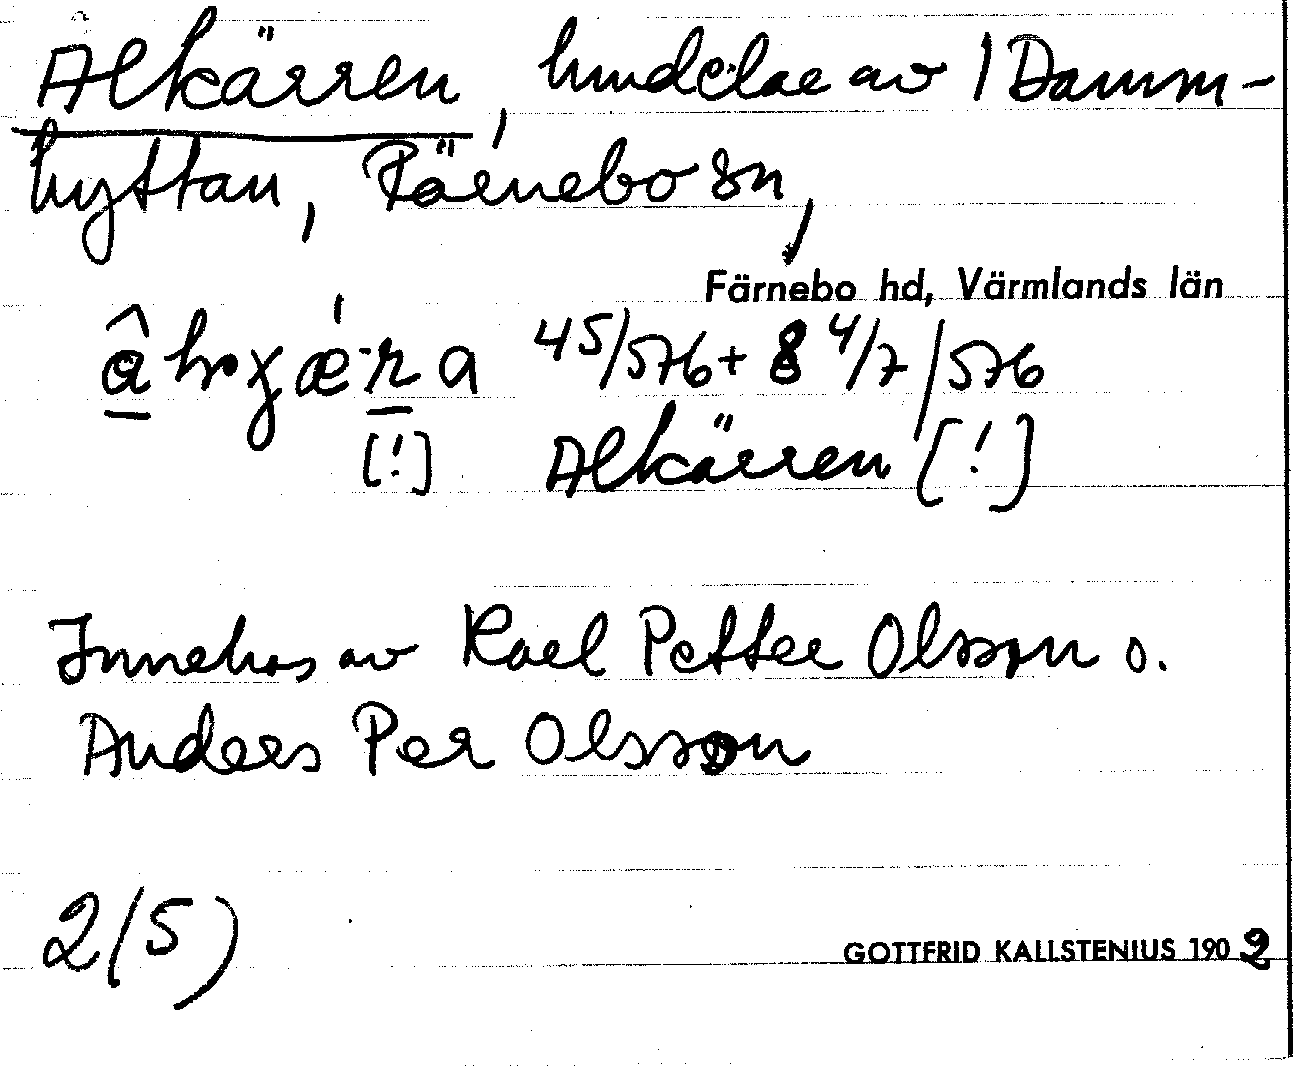 Alkärren, hmdelar av 1 Damm-
hyttan, Färnebo sn,
Färnebo hd, Värmlands län
45/576 + 8 4/7/576
[!] Alkärren [!]
Innehas av Karl Petter Olsson o.
Anders Per Olsson
2(5)
GOTTFRID KALLSTENIUS 1902